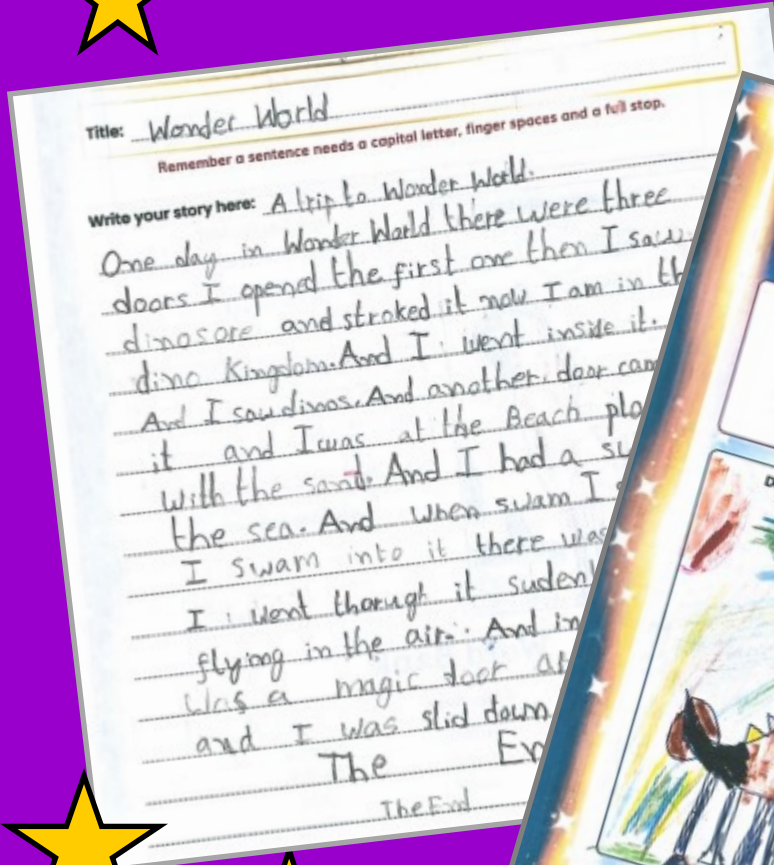 Title: Wonder World
Remember a sentence needs a capital letter, finger spaces and a full stop.
Write your story here: A trip to Wonder World.
One day in Wonder World there were three
doors I opened the first one then I saw
dinosore and stroked it now I am in th
dino Kingdom. And I went inside it.
And I sau dinos. And another door cam
it and I was at the Beach pla
with the sand. And I had a su
the sea. And when swam I
I swam into it there was
I went thorugh it sudenl
flying in the air. And in
was a magic door at
and I was slid down
The En
The End
D